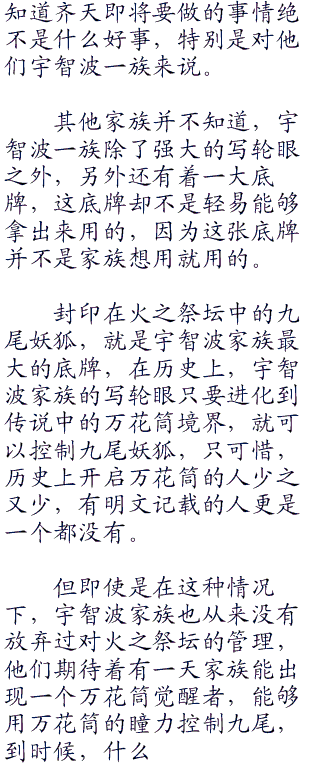 知道齐天即将要做的事情绝
不是什么好事，特别是对他
们宇智波一族来说。
其他家族并不知道，宇
智波一族除了强大的写轮眼
之外，另外还有着一大底
牌，这底牌却不是轻易能够
拿出来用的，因为这张底牌
并不是家族想用就用的。
封印在火之祭坛中的九
尾妖狐，就是宇智波家族最
大的底牌，在历史上，宇智
波家族的写轮眼只要进化到
传说中的万花筒境界，就可
以控制九尾妖狐，只可惜，
历史上开启万花筒的人少之
又少，有明文记载的人更是
一个都没有。
但即使是在这种情况
下，宇智波家族也从来没有
放弃过对火之祭坛的管理，
他们期待着有一天家族能出
现一个万花筒觉醒者，能够
用万花筒的瞳力控制九尾，
到时候，什么